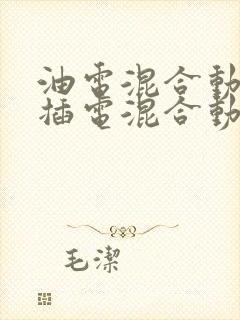 油電混合動
插電混合動
毛潔